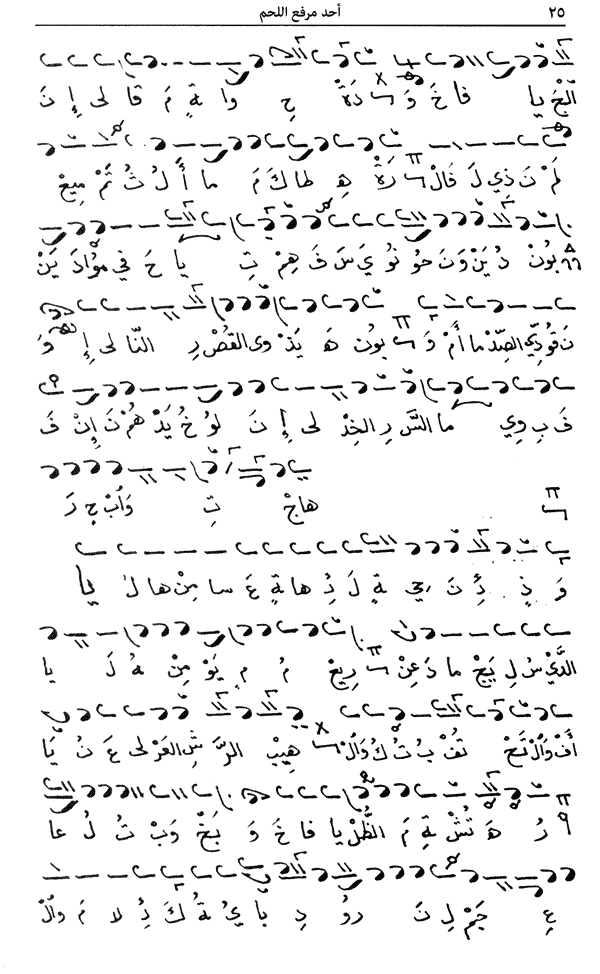 ٢٥ أحد مرفع اللحم
أَلْجَ يا فا خَ وَ دَةْ حِ وا ةٍ مَ قا لى إِ نَ
لَمْ نَ ذِي لَ قالْ رَةْ هِ طا كَ مَ ما أَ لُ ثُ تَمْ مِيعْ
بُونْ دُ يَنْ وَ نَ حوْ نُو يَ سَ فَ هِمْ تِ يا حَ في
نَ قُو دِّي الصِّدْ ما أَمْ وَ بُونْ هَ يَذْ وى القُصْ رِ النّا لى إِ وَ
فَ بِ وِي ما السَّ رِ الخِدْ لى إِ نَ لُو خُ يَدْ هُمْ نَ إِنْ فَ
هاجْ تِ وَابْ حِ رَ
وَ ذِ ئِ نَ حي ةٍ لَ ذِ ها ةٍ عَ سا مِنْ ها لُ يا
الدَّيْ سُ لِ يَجْ ما دَ عِنْ رِيعْ مُ مِ يَوْ مِنْ هُ لَ يا
أَفْ وَالْ تَحْ تُفْ بُ تُ كُ وَالْ هِيبْ الرَّ شِ العَرْ لى عَ نُ يا
رُ هَ تُشْ ةِ مَ الظُّلْ يا فا خَ وَ بَخْ وَبْ تُ لُ عا
عِ جَمْ لِ نَ رو دِ ةُ كَ ئِ لا مَ وَالْ